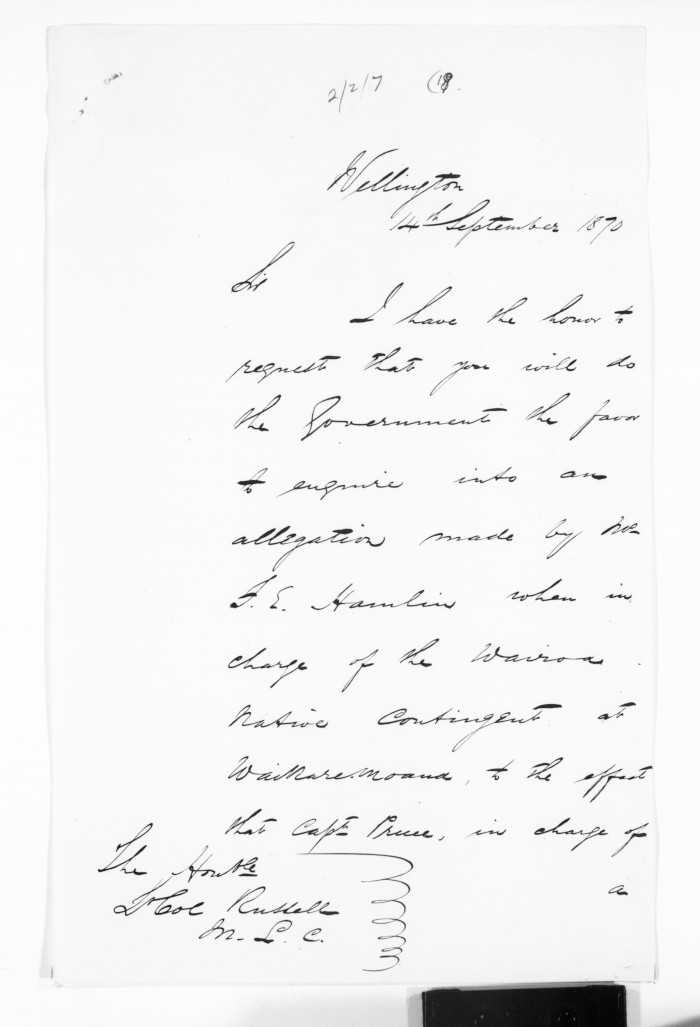 2/2/7 (18).
Wellington
14th September 1870
Sir
I have the honor to
request that you will do
the Government the favor
to enquire into an
allegation made by Mr
F. E. Hamlin when in
charge of the Wairoa
Native Contingent at
Waikare Moana, to the effect
that Captn Preece, in charge of
a
The Honble
Lt Col Russell
M. L. C.